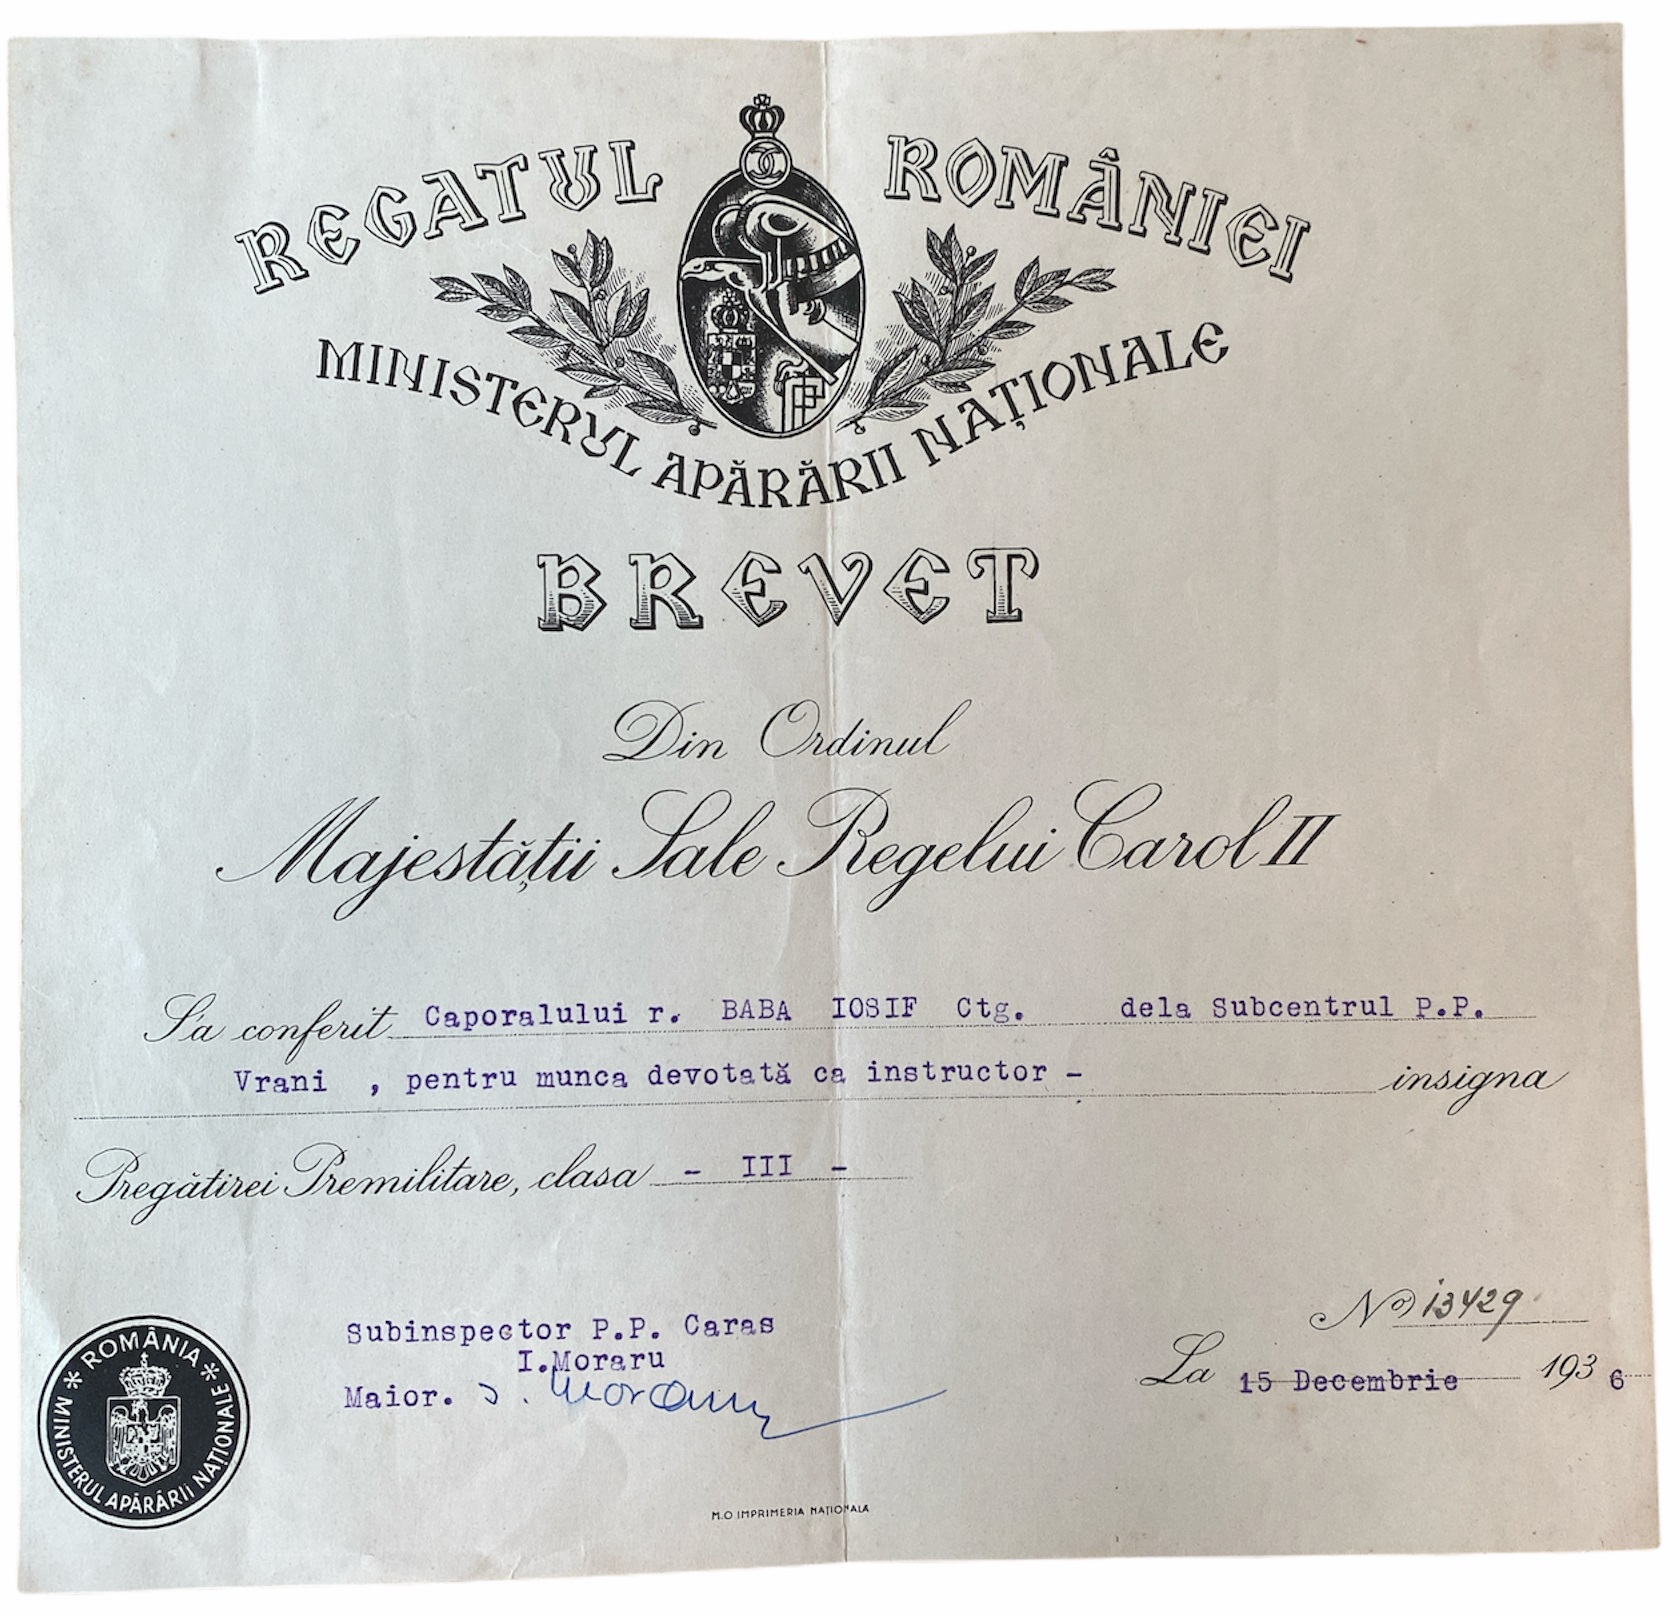 REGATUL ROMÂNIEI
MINISTERUL APĂRĂRII NAȚIONALE
BREVET
Din Ordinul
Majestății Sale Regelui Carol II
S'a conferit Caporalului r. BABA IOSIF Ctg. dela Subcentrul P.P.
Vrani , pentru munca devotată ca instructor - insigna
Pregătirei Premilitare, clasa - III -
No 13429
La 15 Decembrie 1936
Subinspector P.P. Caras
I.Moraru
Maior. I. Moraru
* ROMÂNIA * MINISTERUL APĂRĂRII NAȚIONALE
M.O IMPRIMERIA NAȚIONALĂ